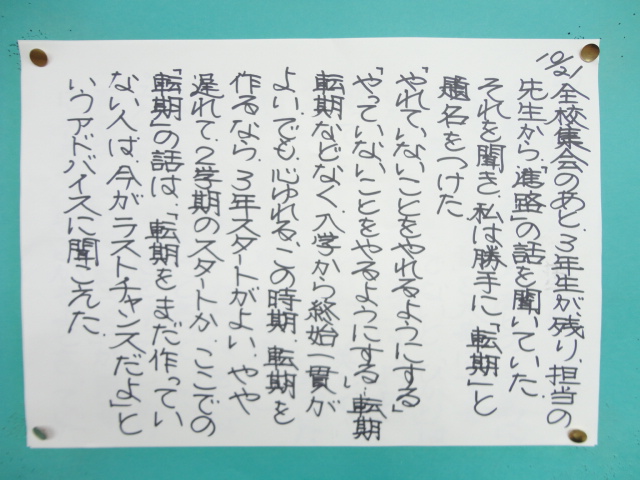 10/21 全校集会のあと、3年生が残り、担当の
先生から、「進路」の話を聞いていた。
それを聞き、私は勝手に、「転期」と
題名をつけた
「やれていないことをやれるようにする」
「やっていないことをやるようにする」転期
転期などなく、入学から終始一貫が
よい。でも、心ゆれる、この時期、転期を
作るなら、3年スタートがよい、やや
遅れて、2学期のスタートか、ここでの
「転期」の話は、「転期をまだ作ってい
ない人は、今がラストチャンスだよ」と
いうアドバイスに聞こえた